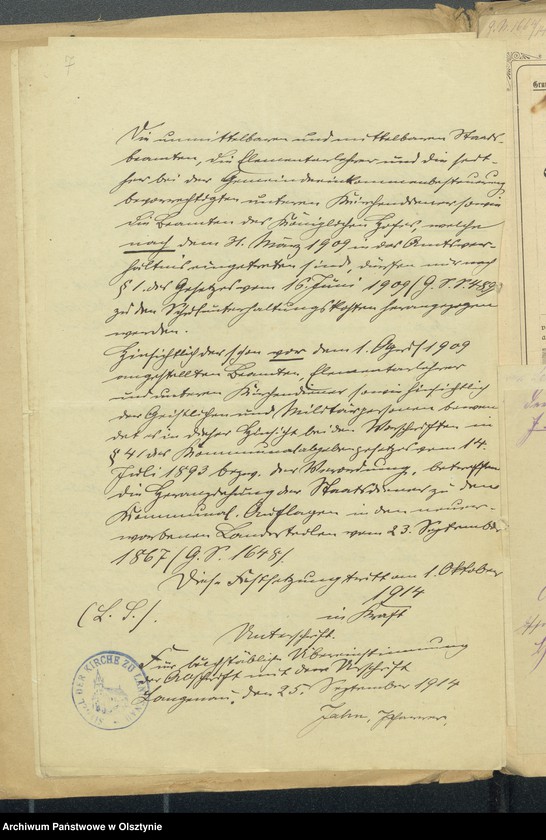 7
Die unmittelbaren und mittelbaren Staats-
beamten, die Elementarlehrer und die seit-
her bei der Gemeindeeinkommenbesteuerung
bevorrechtigten unteren Kirchendiener sowie
die Beamten des Königlichen Hofes, welche
nach dem 31. März 1909 in das Amtsver-
hältnis eingetreten sind, dürfen nur nach
§ 1. des Gesetzes vom 16 Juni 1909 (G. S. S. 489)
zu den Schulunterhaltungskosten herangezogen
werden.
Hinsichtlich der schon vor dem 1. April 1909
angestellten Beamten, Elementarlehrer
und unteren Kirchendiener sowie hinsichtlich
der Geistlichen und Militärpersonen bewen
det es in dieser Hinsicht bei den Vorschriften in
§ 41 des Kommunalabgabengesetzes vom 14.
Juli 1893 bezw. der Verordnung, betreffen
die Heranziehung der Staatsdiener zu den
Kommunal-Auflagen in den neuer-
worbenen Landesteilen vom 23. September
1867 (G. S. 1648).
Diese Festsetzung tritt am 1. Oktober
1914
in Kraft
(L. S.).
Unterschrift.
Für buchstäbliche Übereinstimmung
der Abschrift mit der Urschrift
Langenau, den 25. September 1914
Jahn, Pfarrer.
SIEGEL DER KIRCHE ZU LANGENAU
Archiwum Państwowe w Olsztynie